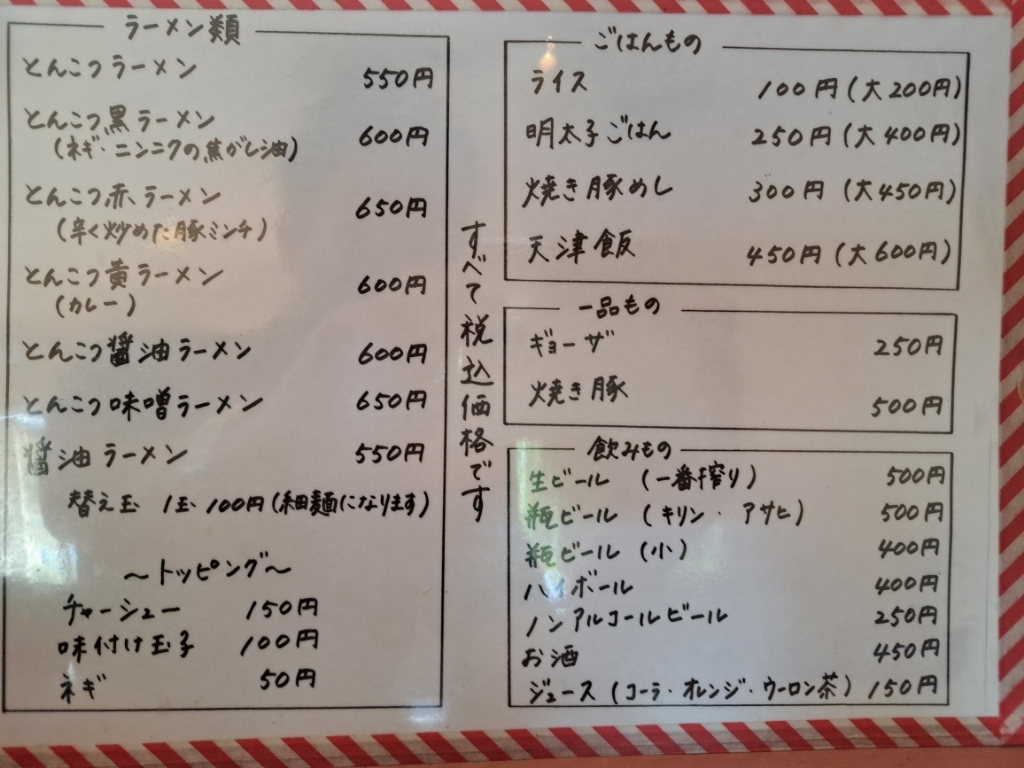 ラーメン類
とんこつラーメン 550円
とんこつ黒ラーメン 600円
(ネギ・ニンニクの焦がし油)
とんこつ赤ラーメン 650円
(辛く炒めた豚ミンチ)
とんこつ黄ラーメン 600円
(カレー)
とんこつ醤油ラーメン 600円
とんこつ味噌ラーメン 650円
醤油ラーメン 550円
替え玉 1玉 100円(細麺になります)
〜トッピング〜
チャーシュー 150円
味付け玉子 100円
ネギ 50円
すべて税込価格です
ごはんもの
ライス 100円(大200円)
明太子ごはん 250円(大400円)
焼き豚めし 300円(大450円)
天津飯 450円(大600円)
一品もの
ギョーザ 250円
焼き豚 500円
飲みもの
生ビール (一番搾り) 500円
瓶ビール (キリン・アサヒ) 500円
瓶ビール (小) 400円
ハイボール 400円
ノンアルコールビール 250円
お酒 450円
ジュース (コーラ・オレンジ・ウーロン茶) 150円